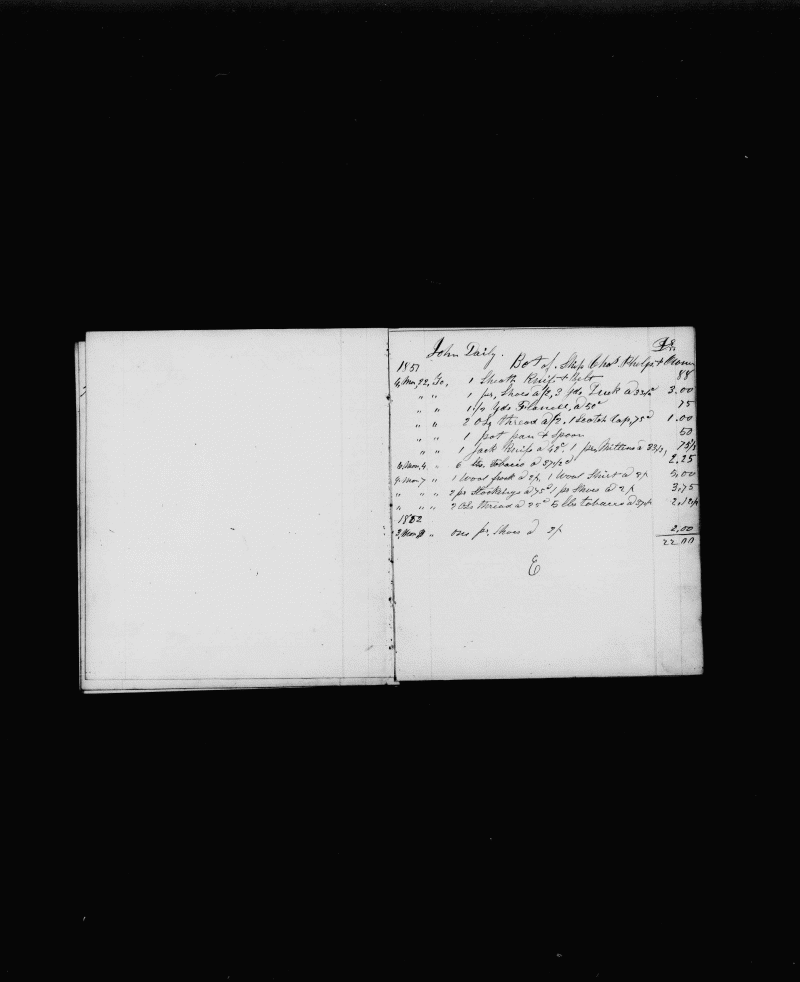 Dr.
John Daily. Bot of Ship Chas Phelps & Owners
1851
4, Mon, 22, To, 1 Sheath Knife & Belt 88
" " 1 pr, Shoes a $2, 3 yds Duck a 33⅓c 3.00
" " 1 1/2 yds Flannell, a 50c 75
" " 2 Ols thread a /2, 1 Scotch Cap, 75c 1.00
" " 1 pot pan & Spoon 50
" " 1 Jack Knife a 42c, 1 pr, Mittens a 33⅓, 75⅓
6, Mon, 4, " 6 lbs, tobacco a 37½c 2.25
9, Mon, 7 " 1 Wool frock a 2/, 1 Wool Shirt a 5.00
" " " " 2 prs Stockings a 75c 1 pr Shoes a 2/ 3.75
" " " " 2 Ols thread a 25c 5 lbs tobacco a 37½ 2.12½
1852
3, Mon, " one pr, Shoes a 2/ 2,00
22 00